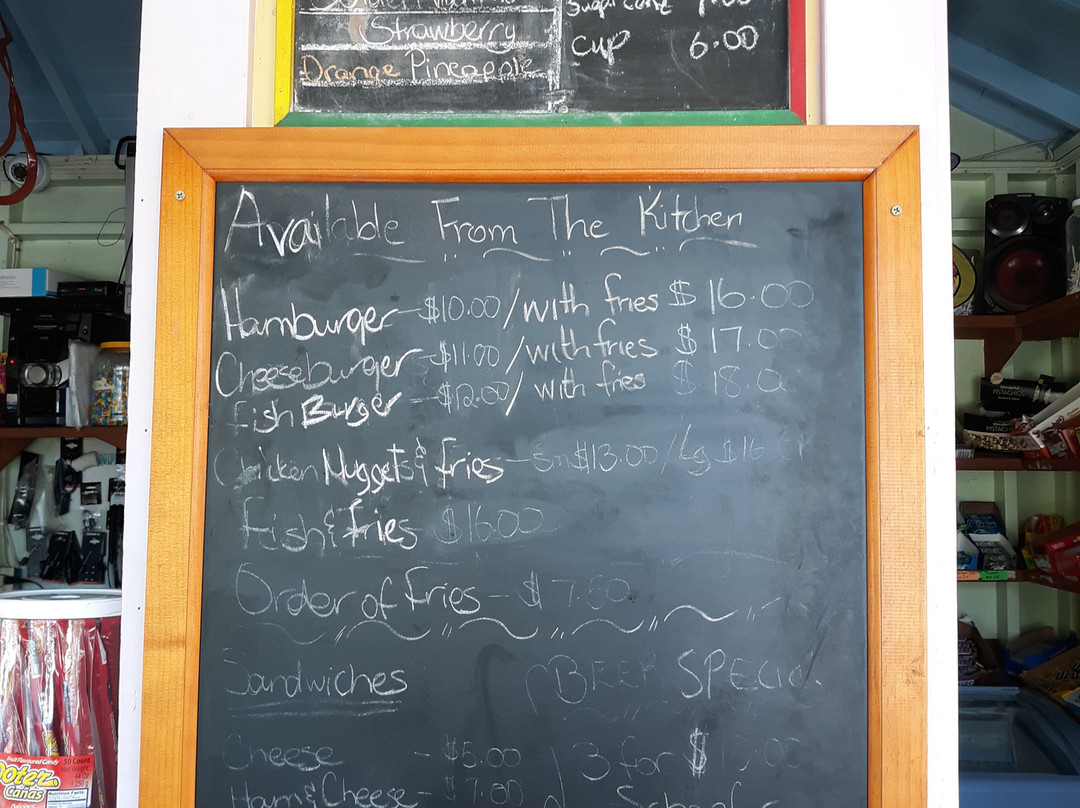 Strawberry
Orange Pineapple
Sugar cane
cup 6.00
Available From The Kitchen
Hamburger - $10.00/with fries $16.00
Cheeseburger - $11.00/with fries $17.00
Fish Burger - $12.00/with fries $18.0
Chicken Nuggets & fries - Sm $13.00/Lg $16
Fish & Fries $16.00
Order of Fries - $7.50
Sandwiches
BEER SPECIAL
Cheese - $5.00
3 for $
Ham & Cheese - $7.00
Fruit Flavoured Candy
50 Count
Net Weight
Canas
Nutrition Facts